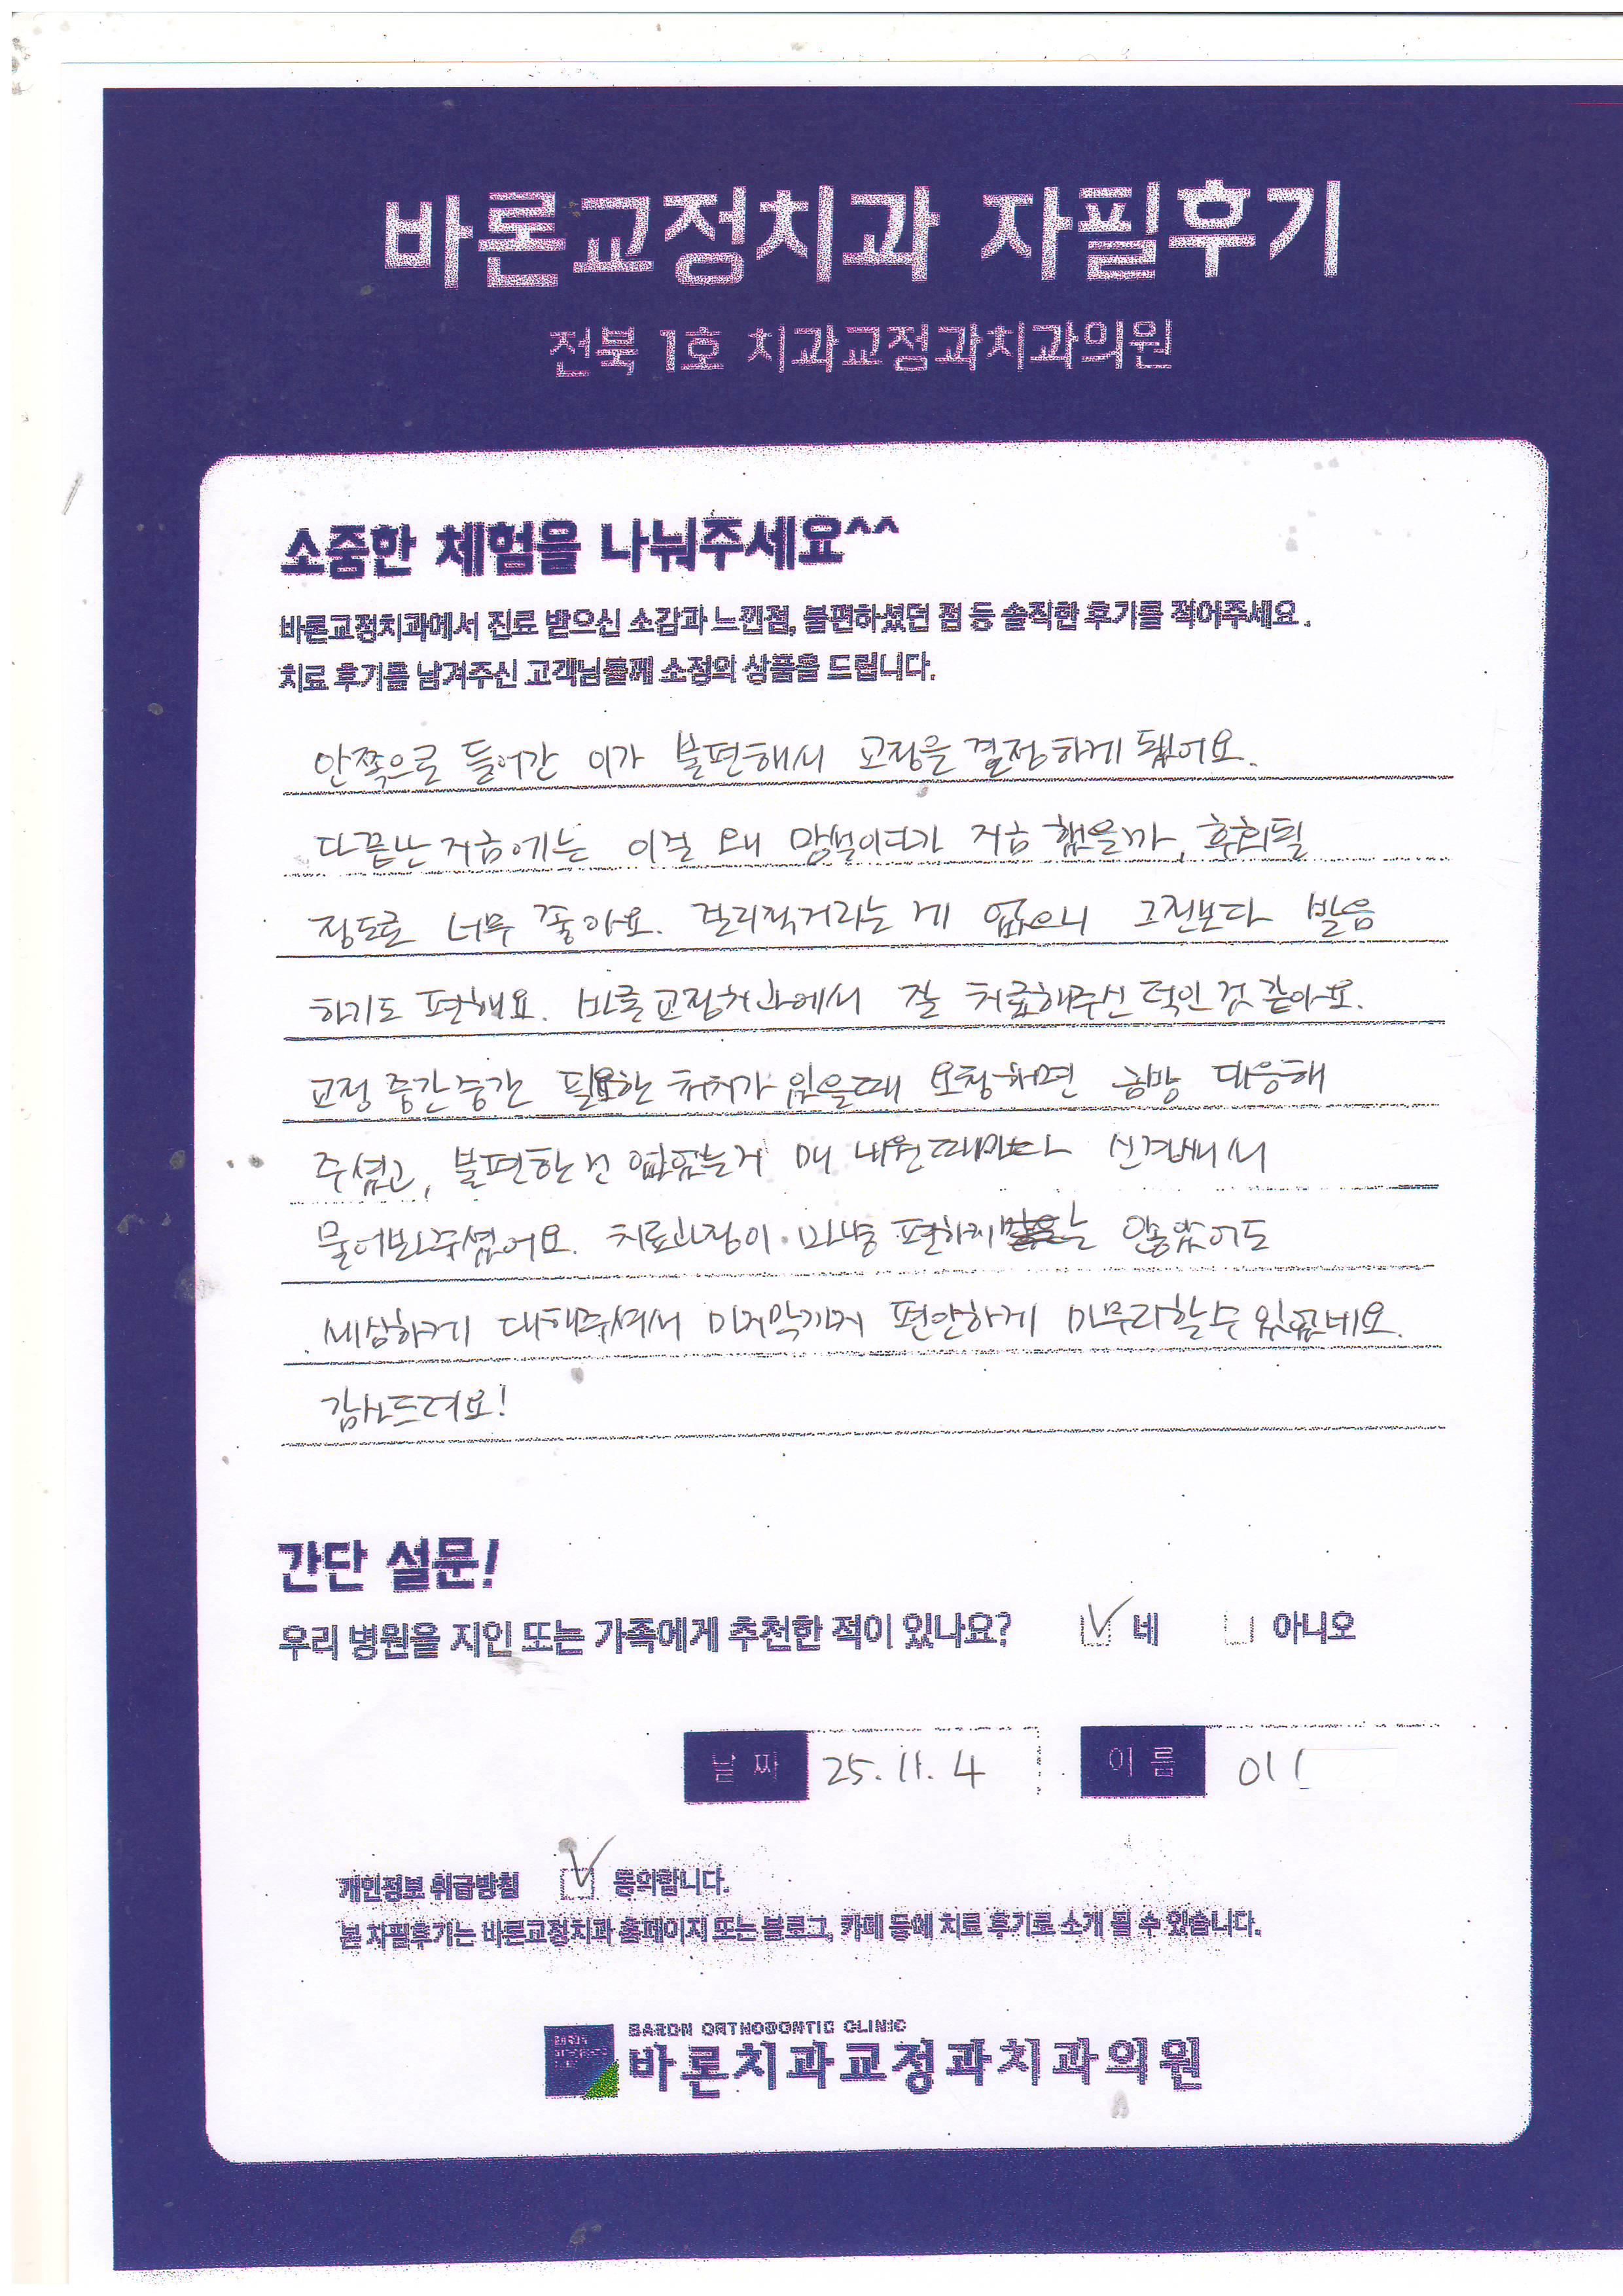 바론교정치과 자필후기
전북 1호 치과교정과치과의원
소중한 체험을 나눠주세요^^
바론교정치과에서 진료 받으신 소감과 느낀점, 불편하셨던 점 등 솔직한 후기를 적어주세요.
치료 후기를 남겨주신 고객님들께 소정의 상품을 드립니다.
안쪽으로 들어간 이가 불편해서 교정을 결정하게 됐어요.
다 끝난 지금에는 이걸 왜 망설이다가 지금 했을까, 후회될
정도로 너무 좋아요. 걸리적거리는 게 없으니 그전보다 발음
하기도 편해요. 바른교정치과에서 잘 치료해주신 덕인 것 같아요.
교정 중간중간 필요한 처치가 있을때 요청하면 금방 대응해
주셨고, 불편한 건 없었는지 매 내원때마다 신경써서
물어봐주셨어요. 치료과정이 마냥 편하지는 않았어도
세심하게 대해주셔서 마지막까지 편안하게 마무리할 수 있었네요.
감사드려요!
간단 설문!
우리 병원을 지인 또는 가족에게 추천한 적이 있나요? 네 아니오
날짜 25.11.4 이름 이
개인정보 취급방침 동의합니다.
본 자필후기는 바론교정치과 홈페이지 또는 블로그, 카페 등에 치료 후기로 소개 될 수 있습니다.
BARON ORTHODONTIC CLINIC
바론치과교정과치과의원